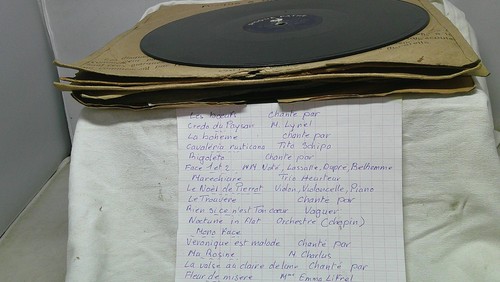 Les boeufs Chanté par
Credo du Paysan M. Lynel
La bohème chanté par
Cavaleria rusticana Tito Schipa
Rigoletto Chanté par
Face 1 et 2 MM. Noté, Lassalle, Dupré, Belhomme
Marechiare Trio
Le Noël de Pierrot Violon, Violoncelle, Piano
Le Trouvère Chanté par
Rien si ce n'est Ton cœur Vaguer
Nocturne in flat Orchestre (chopin)
Mono Face
Véronique est malade Chanté par
Ma Rosine M. Charlus
La valse au claire de lune Chanté par
Fleur de misère Mme Emma Liéfiel